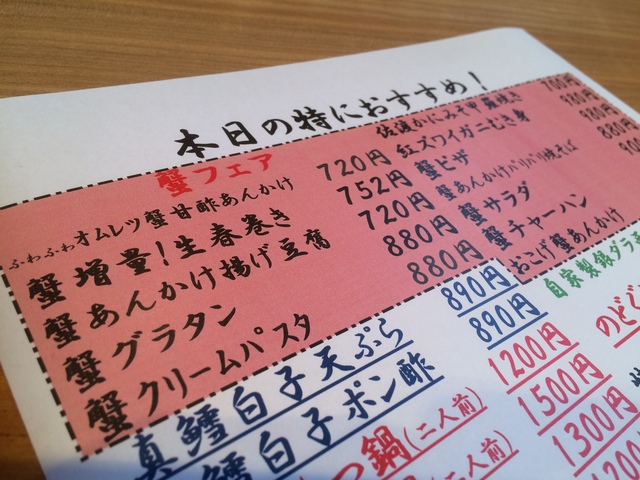 本日の特におすすめ!
蟹フェア
ふわふわオムレツ蟹甘酢あんかけ 720円
蟹増量!生春巻き 752円
蟹あんかけ揚げ豆腐 720円
蟹グラタン 880円
蟹クリームパスタ 880円
佐渡かにみそ甲羅焼き 700円
紅ズワイガニむき身
蟹ピザ
蟹あんかけパリパリ焼そば 880円
蟹サラダ
蟹チャーハン
おこげ蟹あんかけ
真鱈白子天ぷら 890円
鱈白子ポン酢 890円
鍋(二人前) 1200円
(二人前) 1500円
1300円
自家製銀ダラ
のどぐ